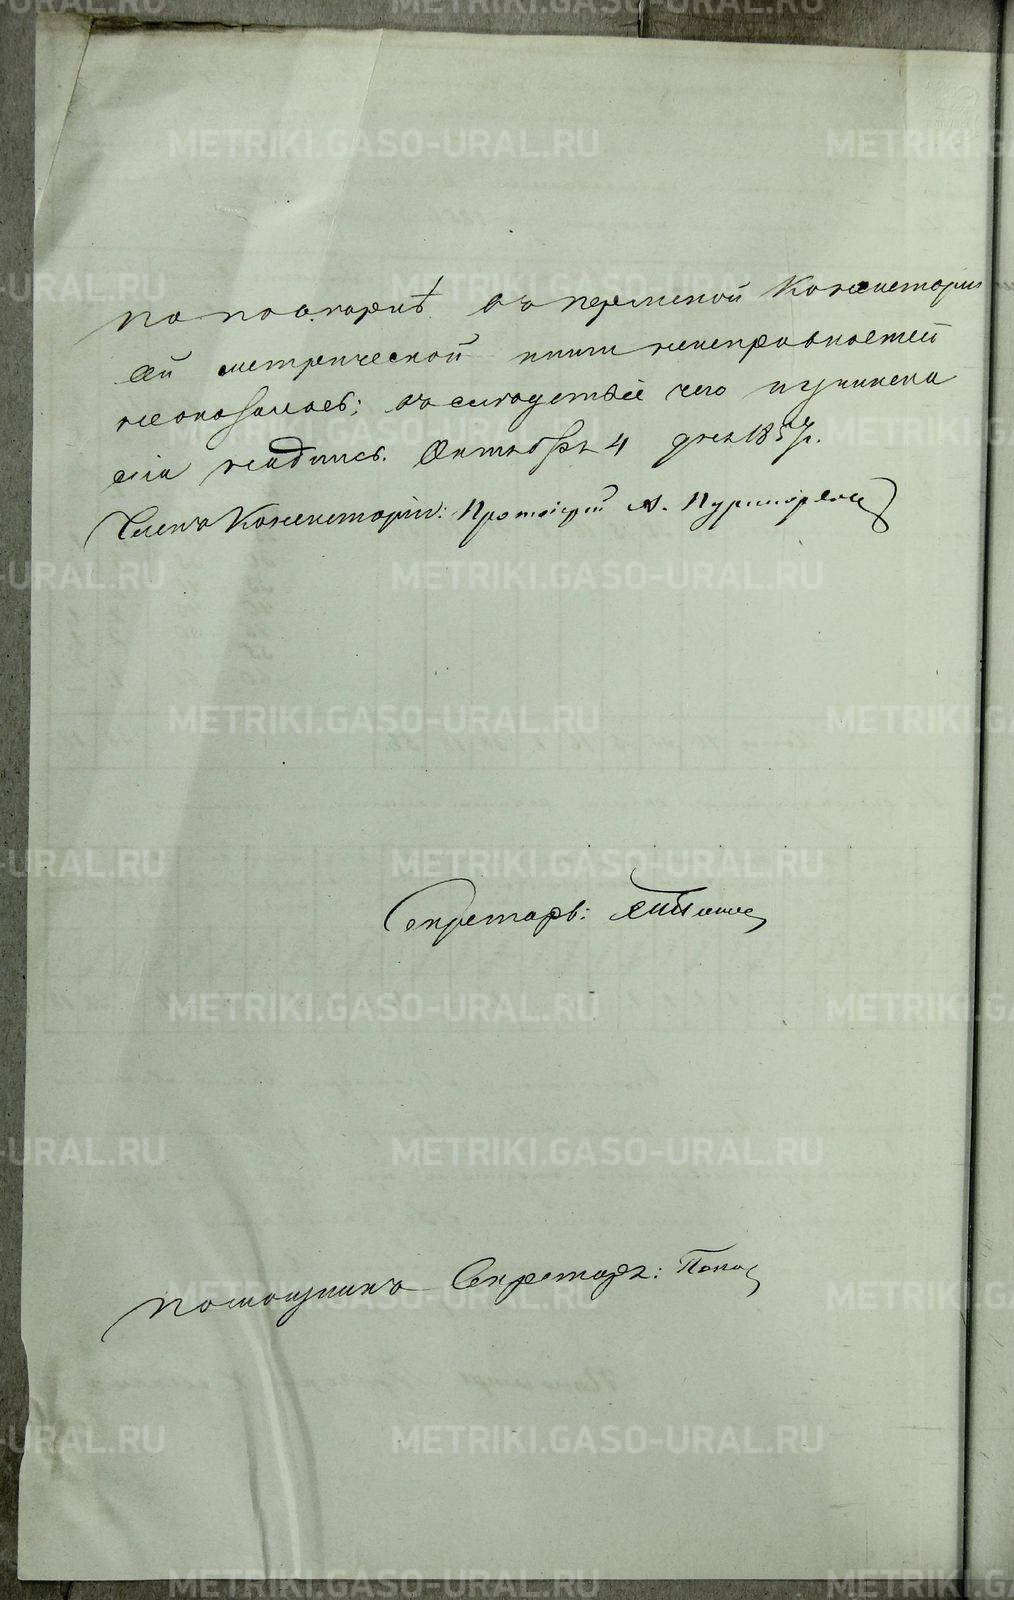 По поверкѣ въ Пермской Консисторіи
сей метрической книги неисправностей
неоказалось; въ слѣдствіе чего и учинена
сія надпись. Октября 4 дня 1857 г.
Членъ Консисторіи: Протоіерей А.
Секретарь:
Помощникъ Секретаря: Попов
METRIKI.GASO-URAL.RU